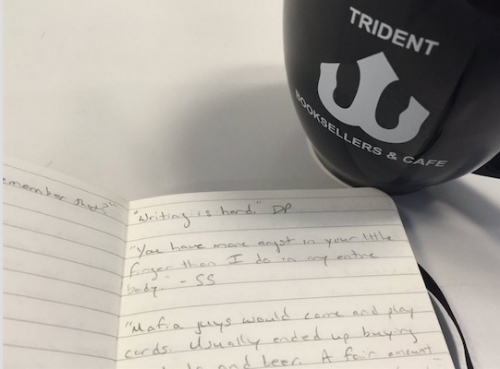 TRIDENT
BOOKSELLERS & CAFE
"Writing is hard." DP
"You have more angst in your little
finger than I do in my entire
body." - SS
"Mafia guys would come and play
cards. Usually ended up buying
and beer. A fair amount